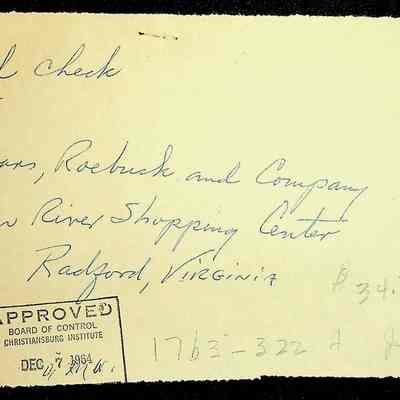 check
Roebuck and Company
River Shopping Center
Radford, Virginia
$34.
APPROVED
BOARD OF CONTROL
CHRISTIANSBURG INSTITUTE
DEC 7 1964
1763-322